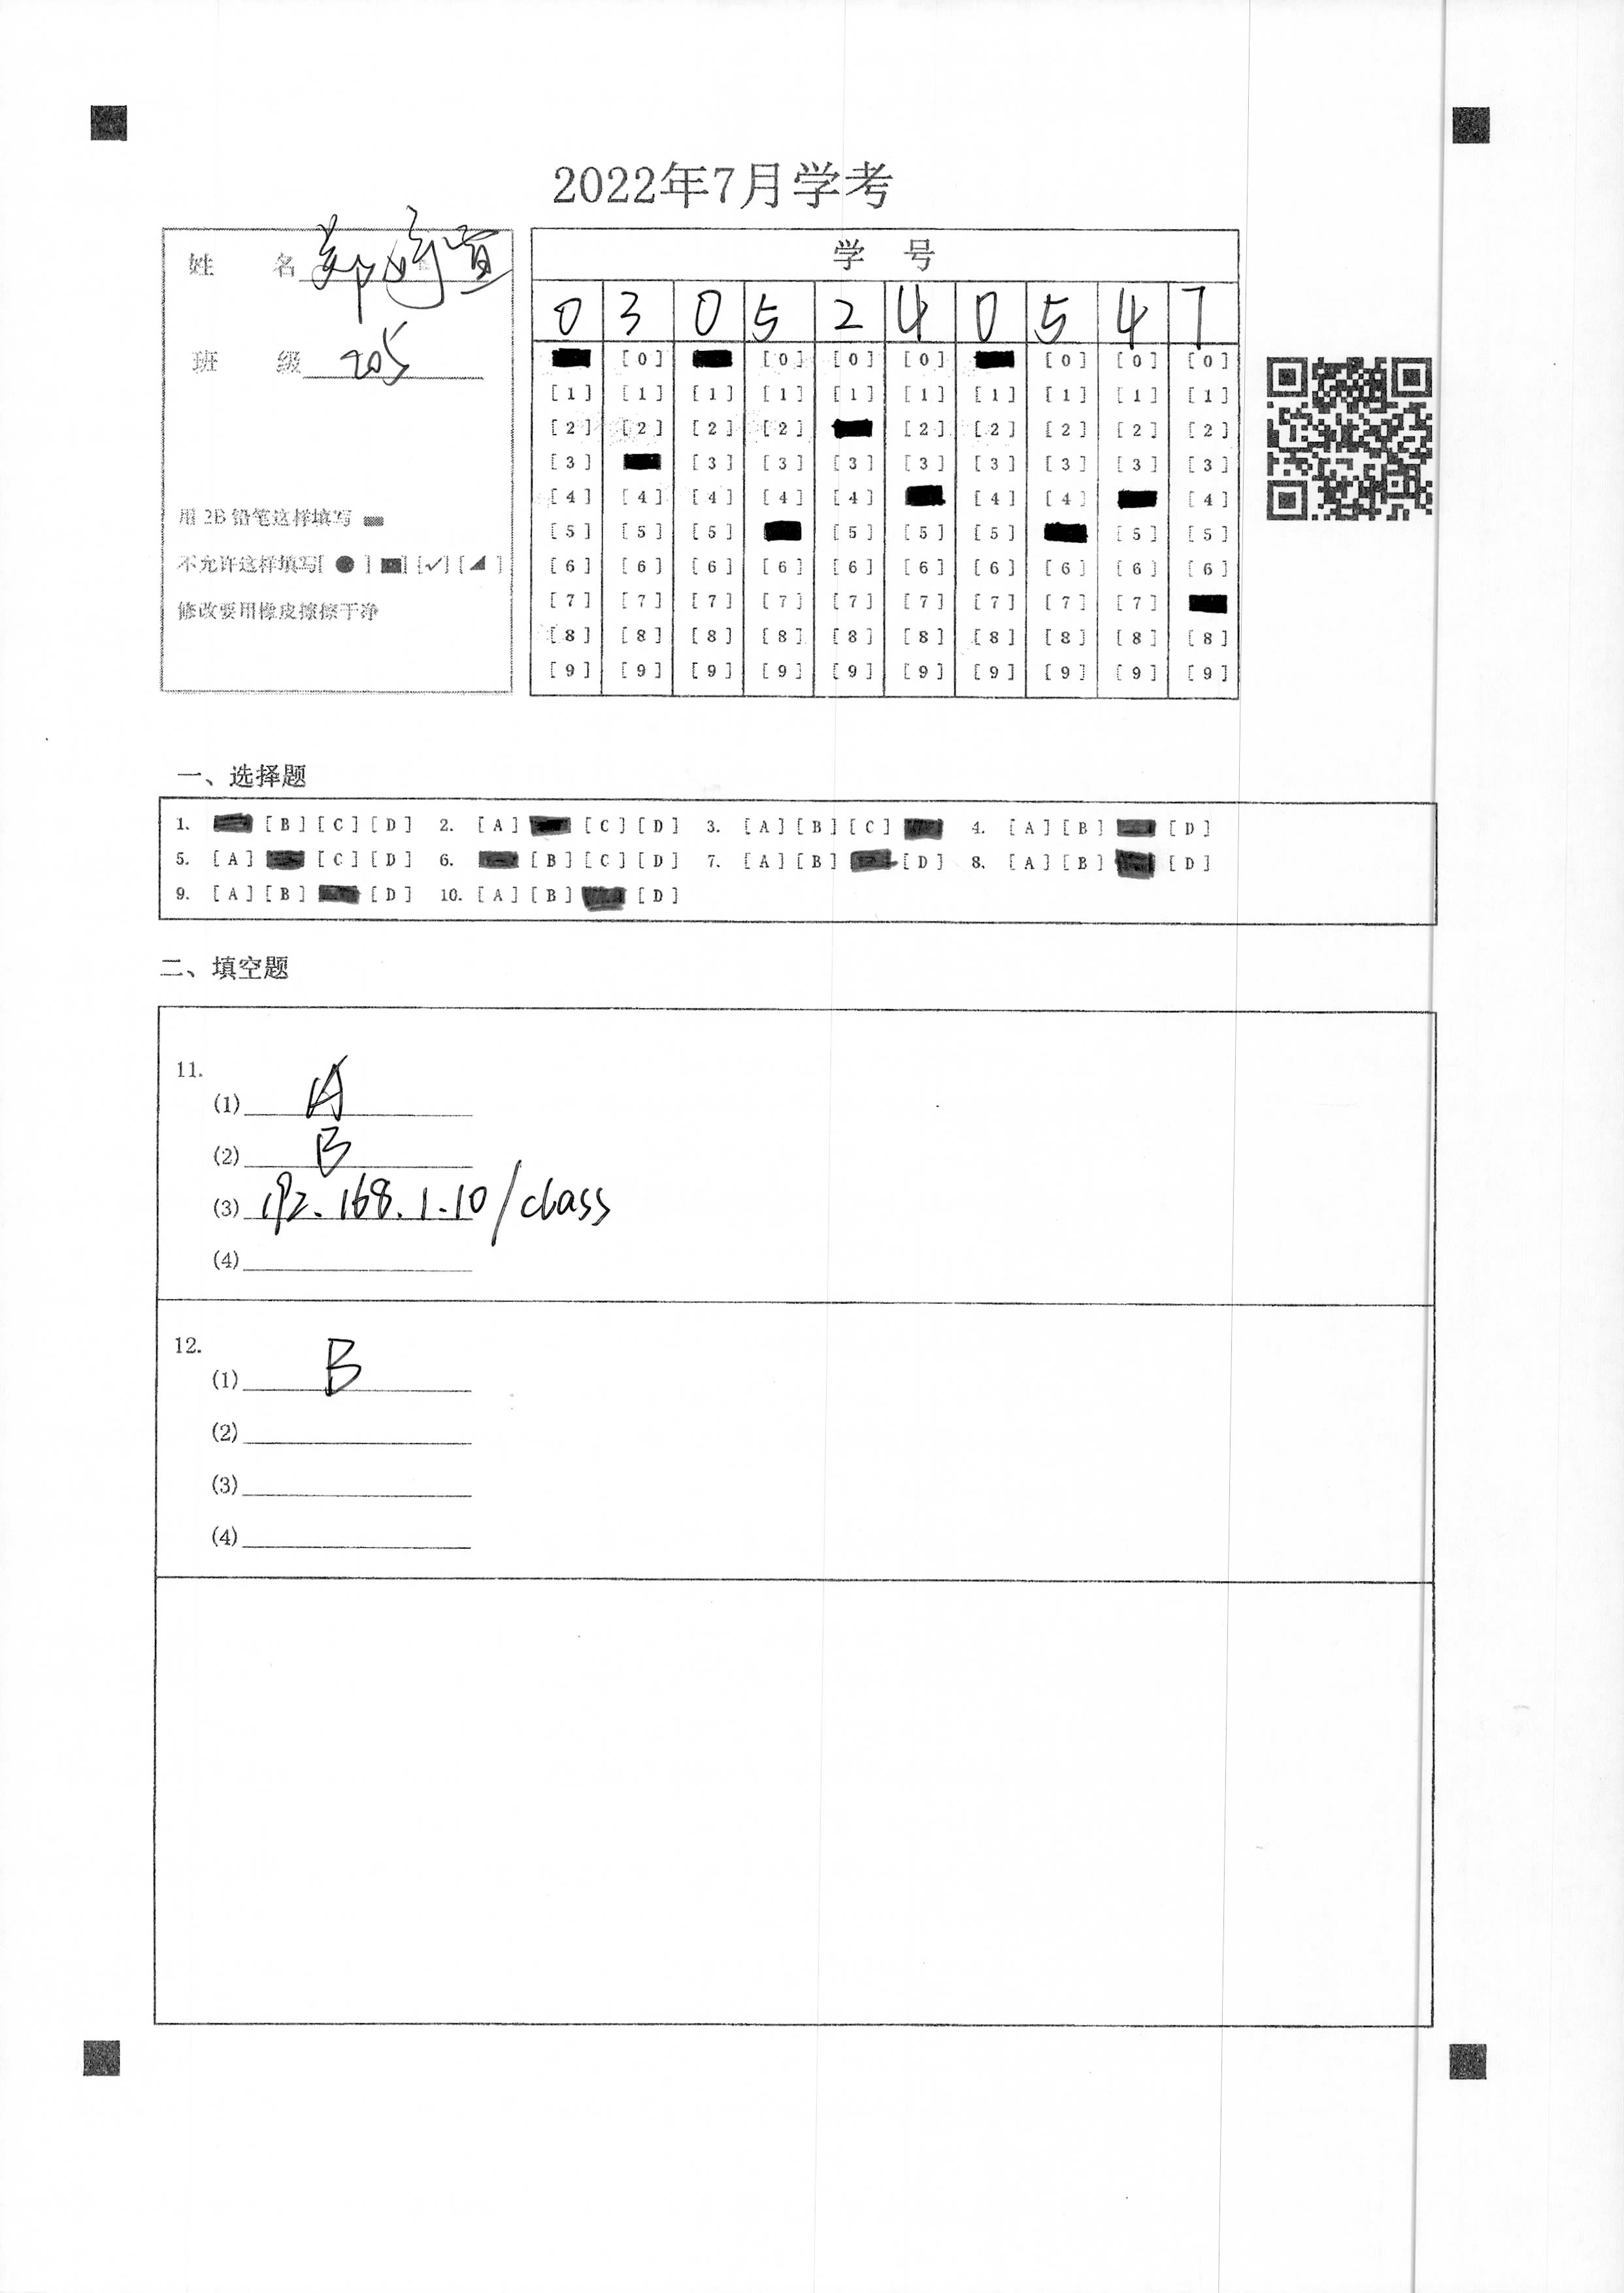 2022年7月学考
姓 名 郑
班 级 205
用 2B 铅笔这样填写
不允许这样填写[ ● ] [■] [✓] [◢ ]
修改要用橡皮擦擦干净
学 号
0 3 0 5 2 4 0 5 4 7
[0] [0] [0] [0] [0] [0] [0]
[1] [1] [1] [1] [1] [1] [1] [1] [1] [1]
[2] [2] [2] [2] [2] [2] [2] [2] [2]
[3] [3] [3] [3] [3] [3] [3] [3] [3]
[4] [4] [4] [4] [4] [4] [4] [4]
[5] [5] [5] [5] [5] [5] [5] [5]
[6] [6] [6] [6] [6] [6] [6] [6] [6] [6]
[7] [7] [7] [7] [7] [7] [7] [7] [7]
[8] [8] [8] [8] [8] [8] [8] [8] [8] [8]
[9] [9] [9] [9] [9] [9] [9] [9] [9] [9]
一、选择题
1. [B] [C] [D] 2. [A] [C] [D] 3. [A] [B] [C] 4. [A] [B] [D]
5. [A] [C] [D] 6. [B] [C] [D] 7. [A] [B] [D] 8. [A] [B] [D]
9. [A] [B] [D] 10. [A] [B] [D]
二、填空题
11.
(1) A
(2) B
(3) 192.168.1.10/class
(4)
12.
(1) B
(2)
(3)
(4)